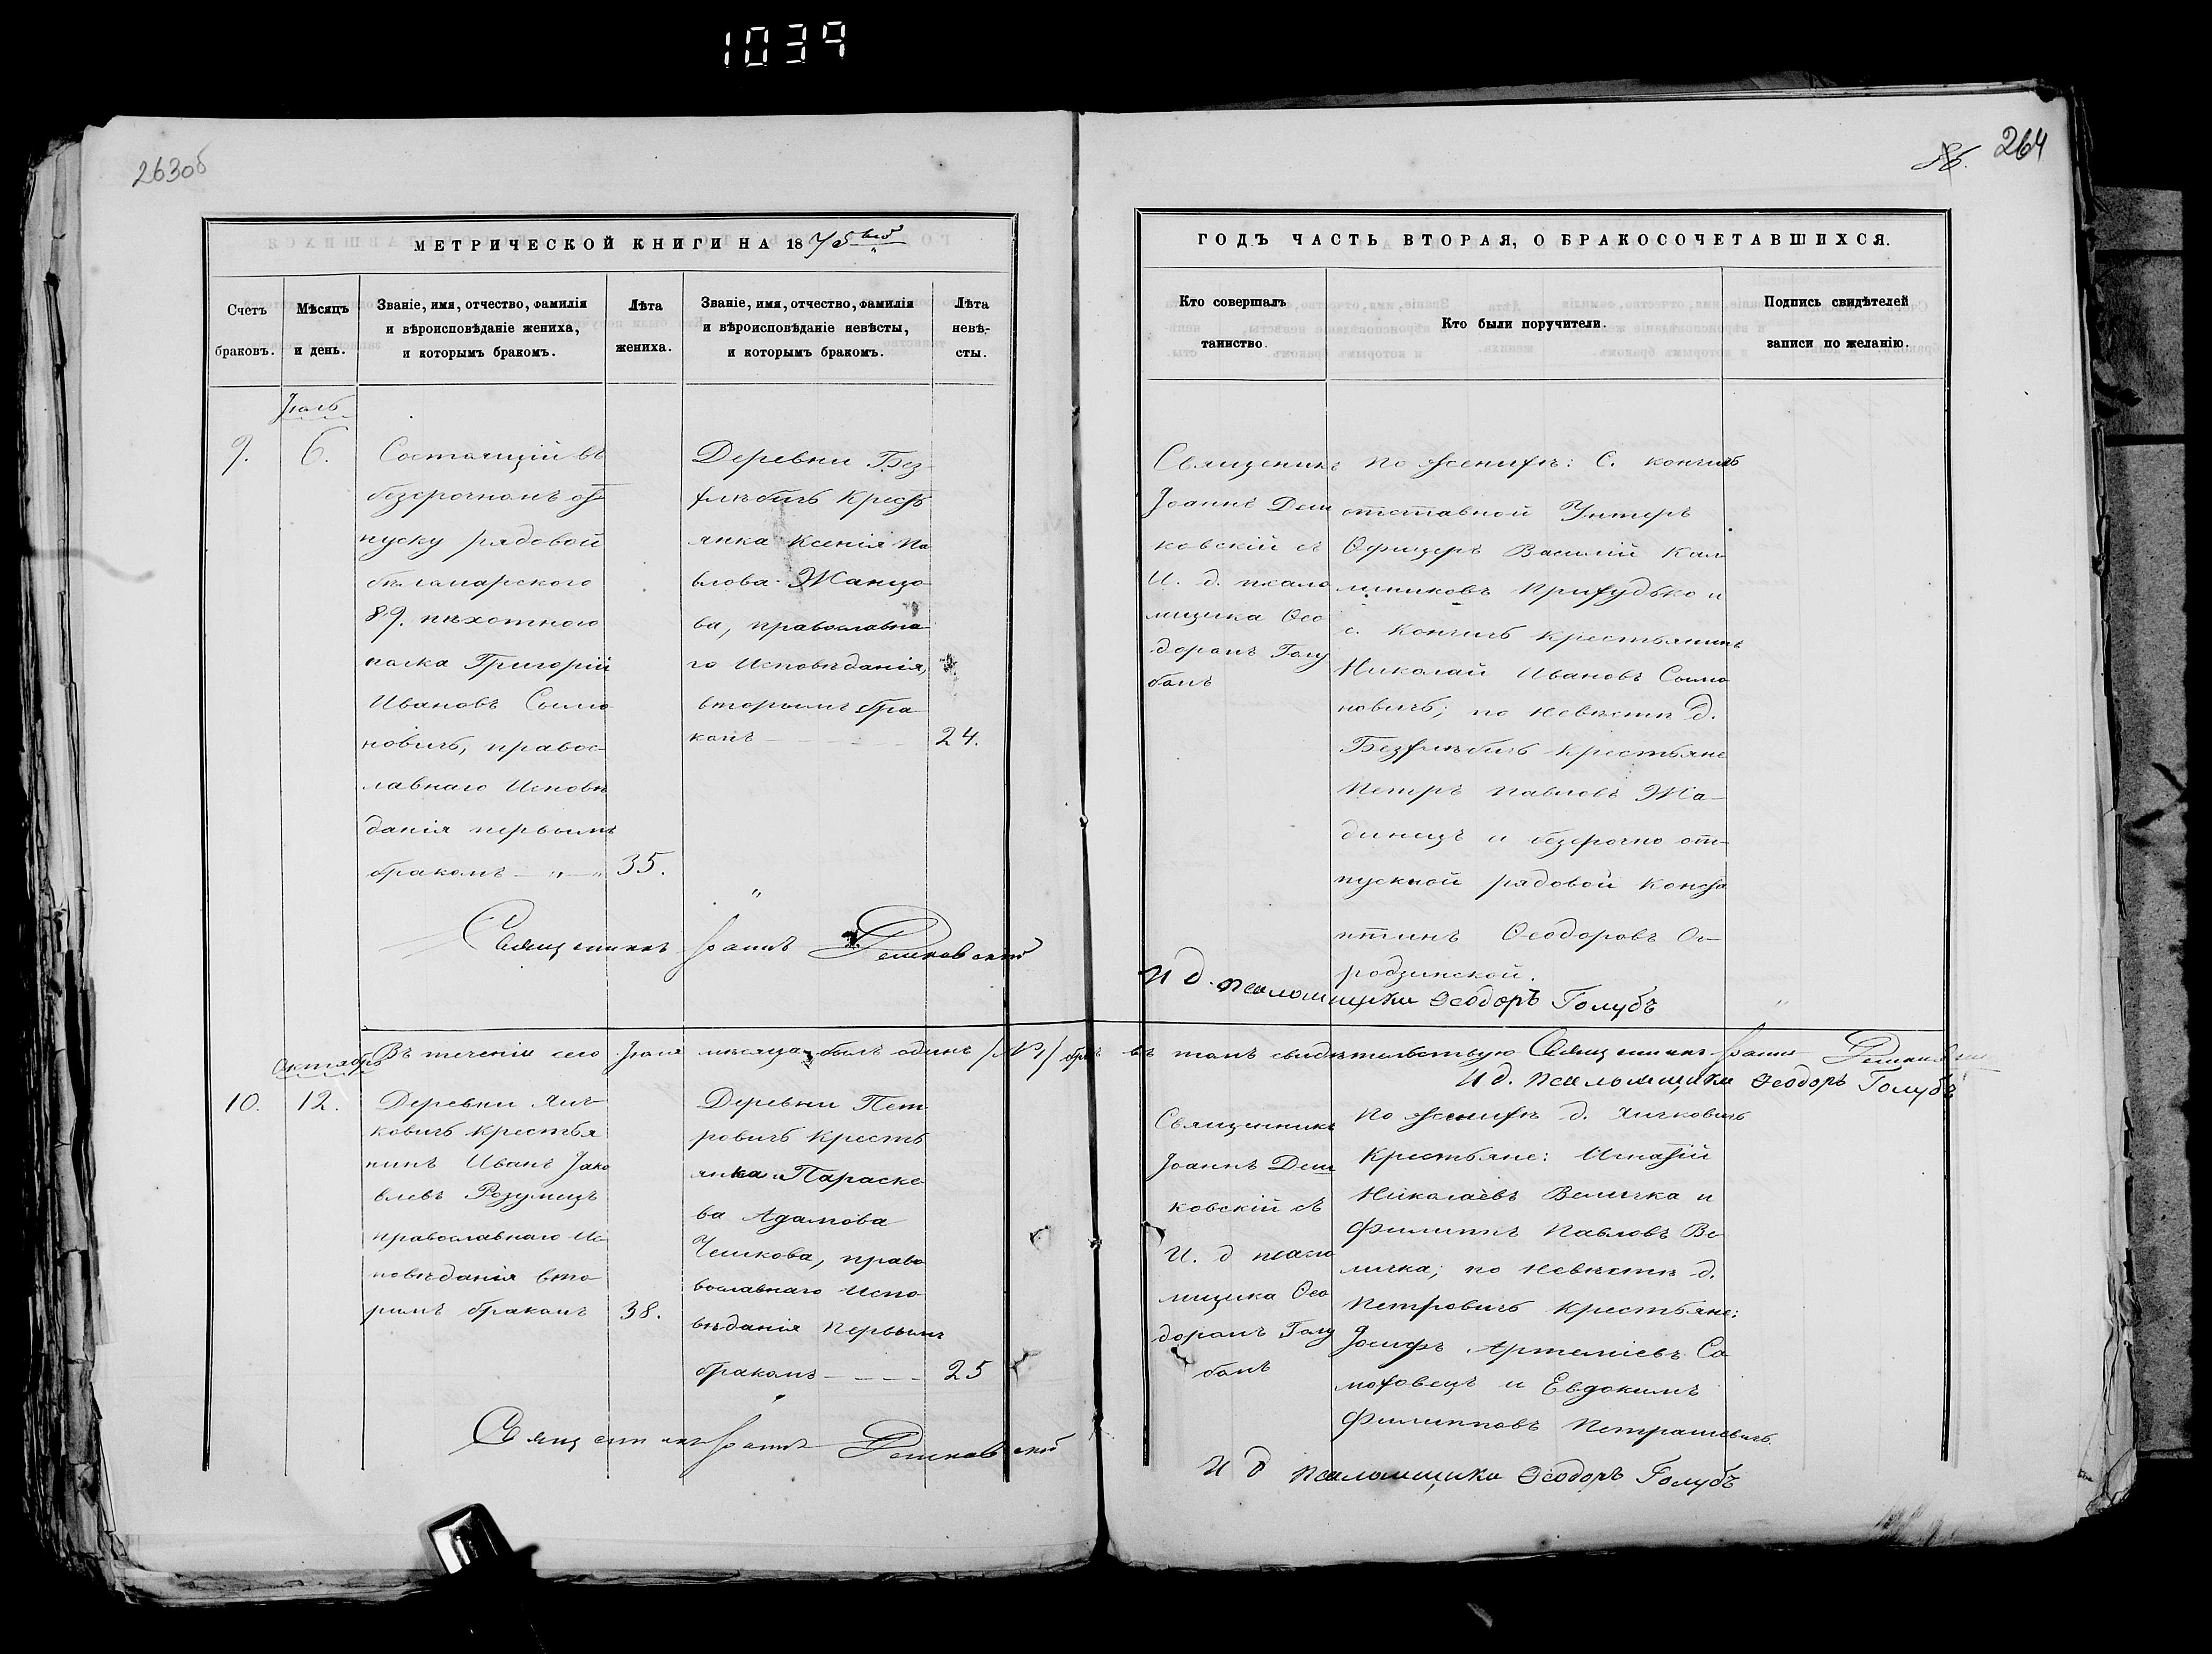 1039
263об
264
МЕТРИЧЕСКОЙ КНИГИ НА 1875
Счетъ браковъ.
Мѣсяцъ и день.
Званіе, имя, отчество, фамилія
и вѣроисповѣданіе жениха,
и которымъ бракомъ.
Лѣта
жениха.
Званіе, имя, отчество, фамилія
и вѣроисповѣданіе невѣсты,
и которымъ бракомъ.
Лѣта
невѣ-
сты.
9.
6.
Состоящій въ
безсрочномъ от
пуску рядовой
89. пѣхотнаго
полка Григорій
Ивановъ Симо
новичъ, правос
лавнаго Исповѣ
данія первымъ
бракомъ
35.
Деревни Без
хлѣбичъ Крест
янка Ксенія Па
влова
ва, православна
го Исповѣданія,
вторымъ бра
комъ
24.
Священникъ Іоаннъ Дешковскій
Въ теченіи сего Іюля мѣсяца былъ одинъ /№1/ бракъ
Октябрь
10.
12.
Деревни Яич
ковичъ крестья
нинъ Иванъ Іако
влевъ Розумецъ
православнаго Ис
повѣданія вто
рымъ бракомъ
38.
Деревни Пет
ровичъ Кресть
янка Параске
ва Адамова
Чешкова, право
вославнаго Испо
вѣданія первымъ
бракомъ
25
Священникъ Іоаннъ Дешковскій
ГОДЪ ЧАСТЬ ВТОРАЯ, О БРАКОСОЧЕТАВШИХСЯ.
Кто совершалъ
таинство.
Кто были поручители.
Подпись свидѣтелей
записи по желанію.
Священникъ
Іоаннъ Деш
ковскій съ
И. д. псало
мщика Ѳео
доромъ Голу
бомъ
по женихѣ: С. Кончичъ
отставной Унтеръ
Офицеръ Василій Кал
лиников Прихудько и
с. Кончичъ крестьянинъ
Николай Ивановъ Симо
новичъ; по невѣстѣ д.
Безхлѣбичъ крестьяне
Петръ Павловъ Жа
динецъ и безсрочно от
пускной рядовой Конста
нтинъ Ѳеодоровъ
родзинской.
И д. псаломщика Ѳеодоръ Голубъ
въ томъ свидѣтельствую Священникъ Іоаннъ Дешковскій
И д. псаломщика Ѳеодоръ Голубъ
Священникъ
Іоаннъ Деш
ковскій съ
И. д псало
мщика Ѳео
доромъ Голу
бомъ
по женихѣ д. Яичковичъ
Крестьяне: Игнатій
Николаевъ Величка и
Филиппъ Павловъ Ве
личка; по невѣстѣ д.
Петровичъ Крестьяне:
Іосифъ Артеміевъ Са
моховецъ и Евдокимъ
Филипповъ Петрашевичъ.
И д псаломщика Ѳеодоръ Голубъ